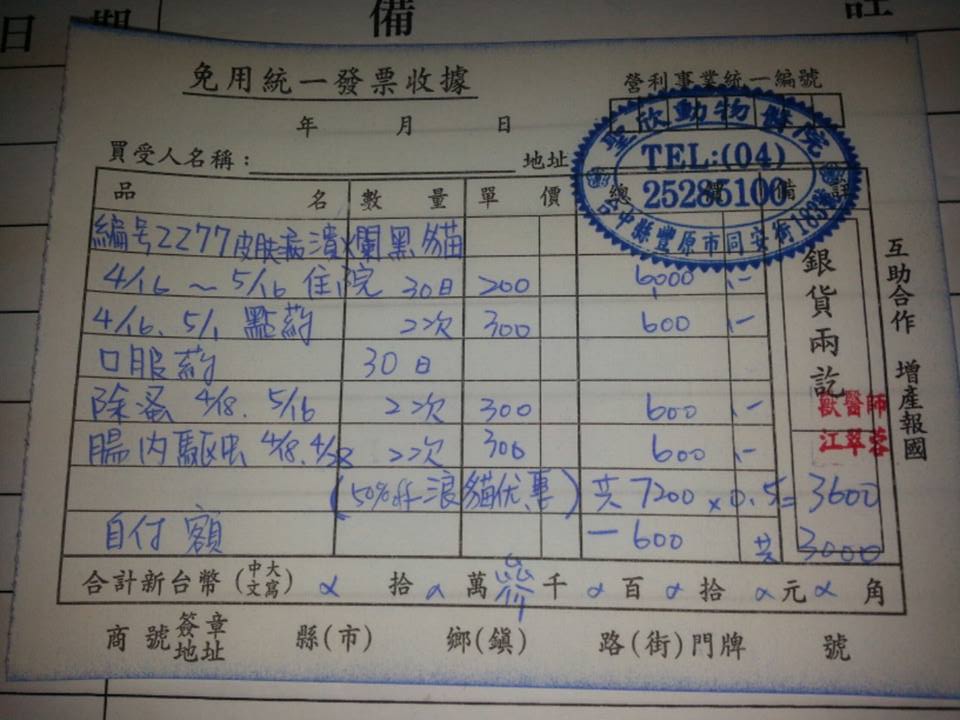 日 期 備 註
免用統一發票收據
營利事業統一編號
年 月 日
聖欣動物醫院
TEL:(04)
25285100
台中縣豐原市同安街183號
買受人名稱： 地址
品 名 數 量 單 價 總 價 備 註
編号2277皮肤病潰爛黑貓
4/16 ~ 5/16 住院 30日 200 6000 -
4/16. 5/1 點药 2次 300 600 -
口服药 30日
除蚤 4/18. 5/16 2次 300 600 -
腸内驅虫 4/18. 4/28 2次 300 600 -
(50% off 浪貓优惠) 共 7200 x 0.5 = 3600
自付額 - 600 共 3000
銀貨兩訖
獸醫師
江翠蓉
互助合作 增產報國
合計新台幣(中文大寫) 拾 萬 叁 千 百 拾 元 角
商號簽章地址 縣(市) 鄉(鎮) 路(街)門牌 號